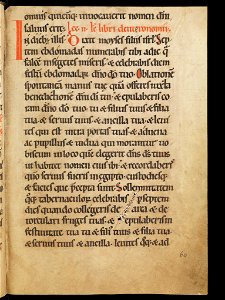 omnis quicūq; inuocauerit nomen dñi
saluus erit. lec̄ n̄ libri deuteronomii.
In dieb; illis. Dixit moyses filiis isrl̄. Sep
tem ebdomadas numerabis tibi adie q̄
falcē insegetes miseris. & celebrabis diem
festū ebdomadaꝝ dn̄o dō tuo. Oblationē
spontaneā manus tue quā offeres iuxta
benedictionē dn̄i dī tui. & epulaberis co
ram dn̄o dō tuo. tu & filius tuus & filia
tua. & seruus tuus & ancilla tua. & leui
tes qui est intra portas tuas. & aduena
ac pupillus & uidua qui morantur uo
biscum inloco quē elegerit dn̄s ds̄ tuus
ut habitet nomen eius ibi. & recordaberis
qm̄ seruus fueris in egypto. custodiesq;
& facies que p̄cepta sunt. Sollempnitatem
quoq; tabernaculoꝝ celebrabis p̄ septem
dies quando collegeris de area &
torculari fruges tuas. & epulaberis in
festiuitate tua tu & filius tuus & filia tua
& seruus tuus & ancilla. leuites quoq; & ad
60